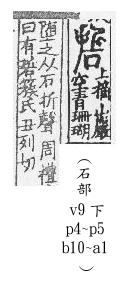 硩
上摘山巖
空青珊瑚
墮之从石折聲周禮
曰有硩蔟氏丑列切
（石部
v9下
p4~p5
b10~a1
）